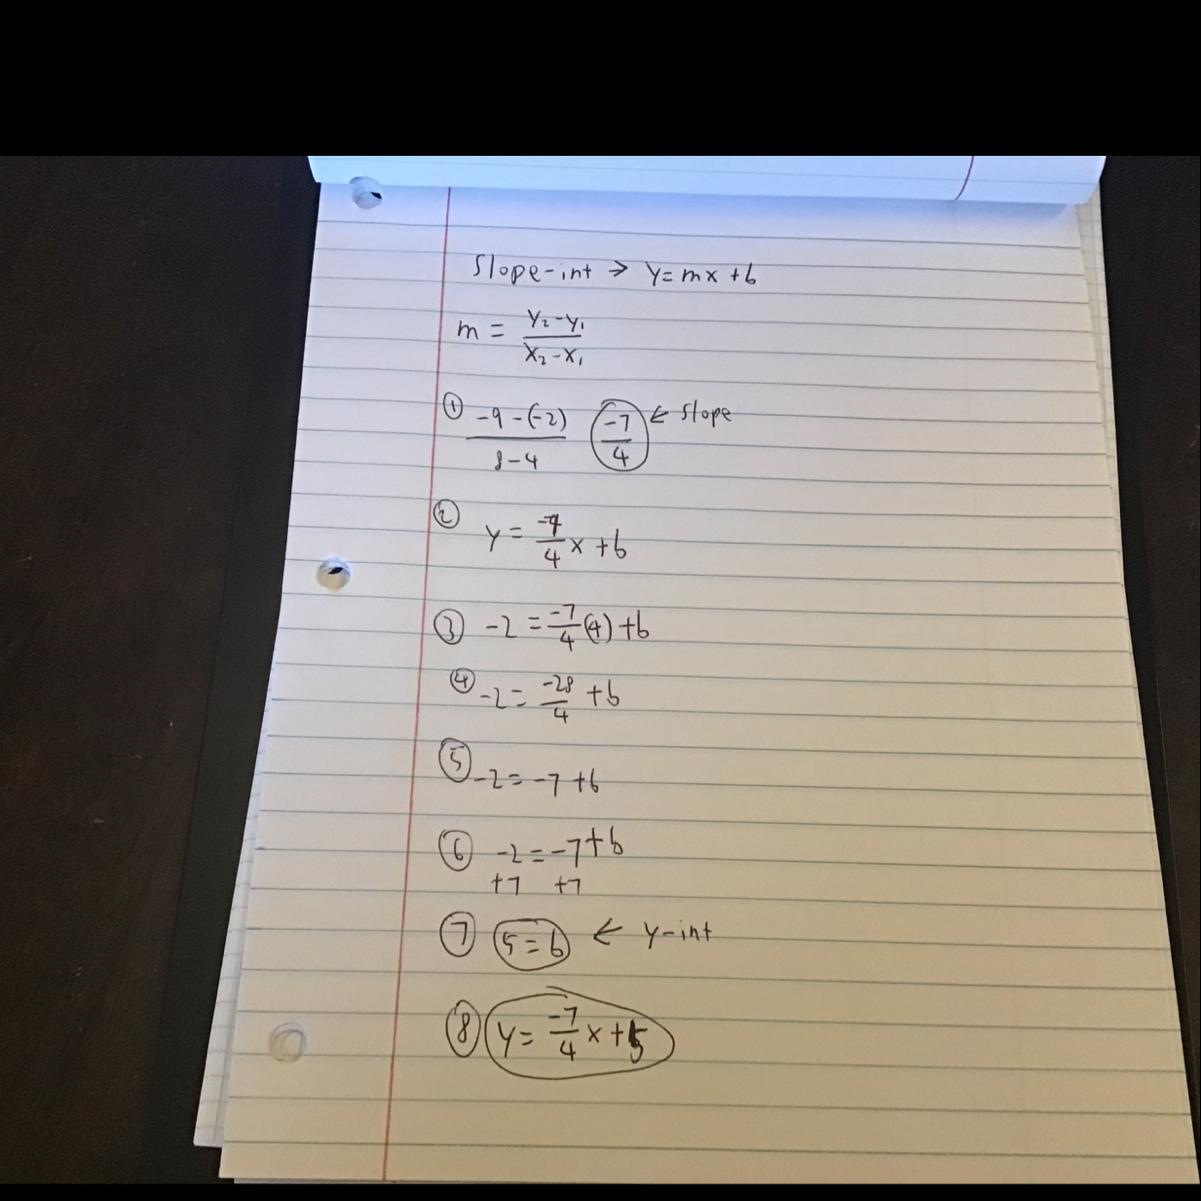 Slope-int → y=mx+b
m = y₂-y₁/x₂-x₁
① -9-(-2)/8-4 -7/4 ← slope
② y = -7/4x+b
③ -2=-7/4(4)+b
④ -2=-28/4+b
⑤ -2=-7+b
⑥ -2=-7+b
+7 +7
⑦ 5=b ← y-int
⑧ y=-7/4x+5